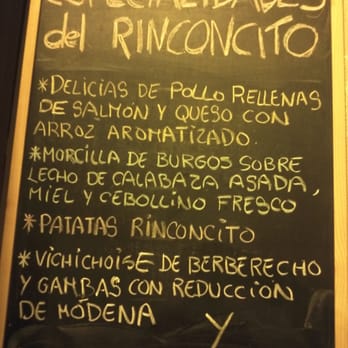 ESPECIALIDADES
del RINCONCITO
*DELICIAS DE POLLO RELLENAS
DE SALMÓN Y QUESO CON
ARROZ AROMATIZADO.
*MORCILLA DE BURGOS SOBRE
LECHO DE CALABAZA ASADA,
MIEL Y CEBOLLINO FRESCO
*PATATAS RINCONCITO
*VICHICHOISE DE BERBERECHO
Y GAMBAS CON REDUCCIÓN
DE MÓDENA
Y